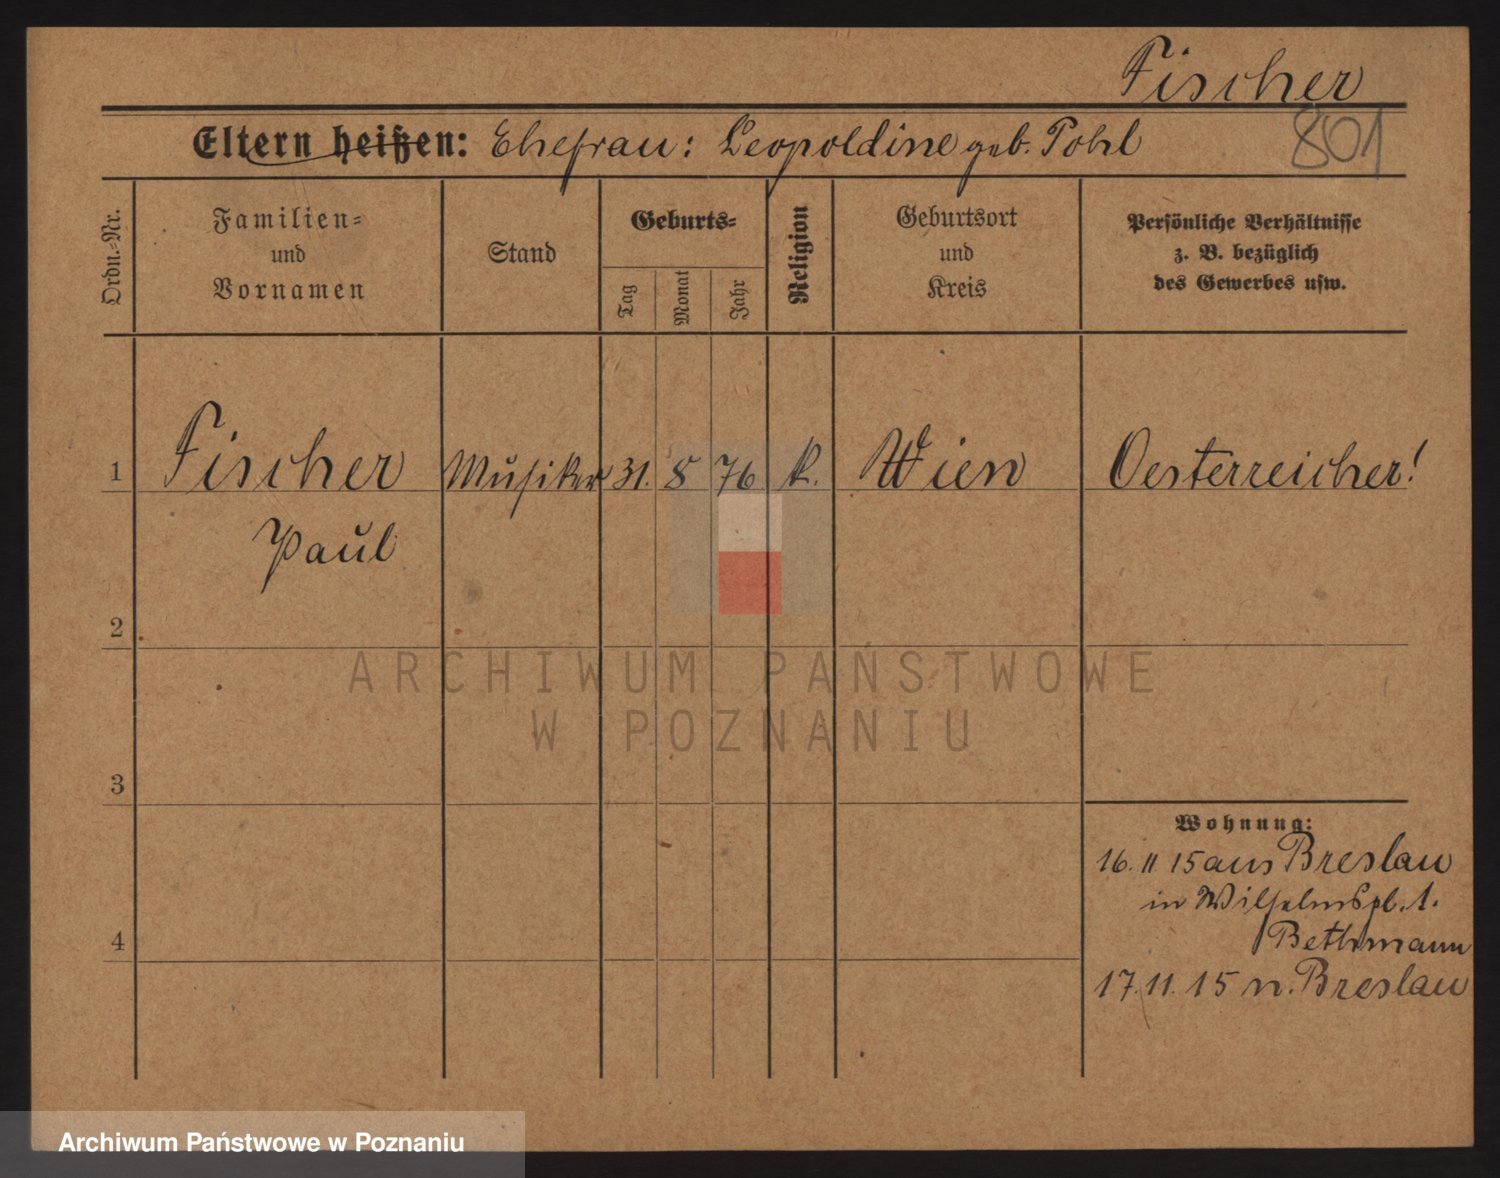 Fischer
Eltern heißen: Ehefrau: Leopoldine geb. Pohl
801
Ordn.-Nr.
Familien-
und
Vornamen
Stand
Geburts-
Tag
Monat
Jahr
Religion
Geburtsort
und
Kreis
Persönliche Verhältnisse
z. B. bezüglich
des Gewerbes usw.
1 Fischer Musiker 31. 8 76 k. Wien Oesterreicher!
Paul
2
ARCHIWUM PAŃSTWOWE
W POZNANIU
3
Wohnung:
16. 11 15 aus Breslau
in Wilhelmspl. 1.
Bethmann
4
17. 11. 15 n. Breslau
Archiwum Państwowe w Poznaniu